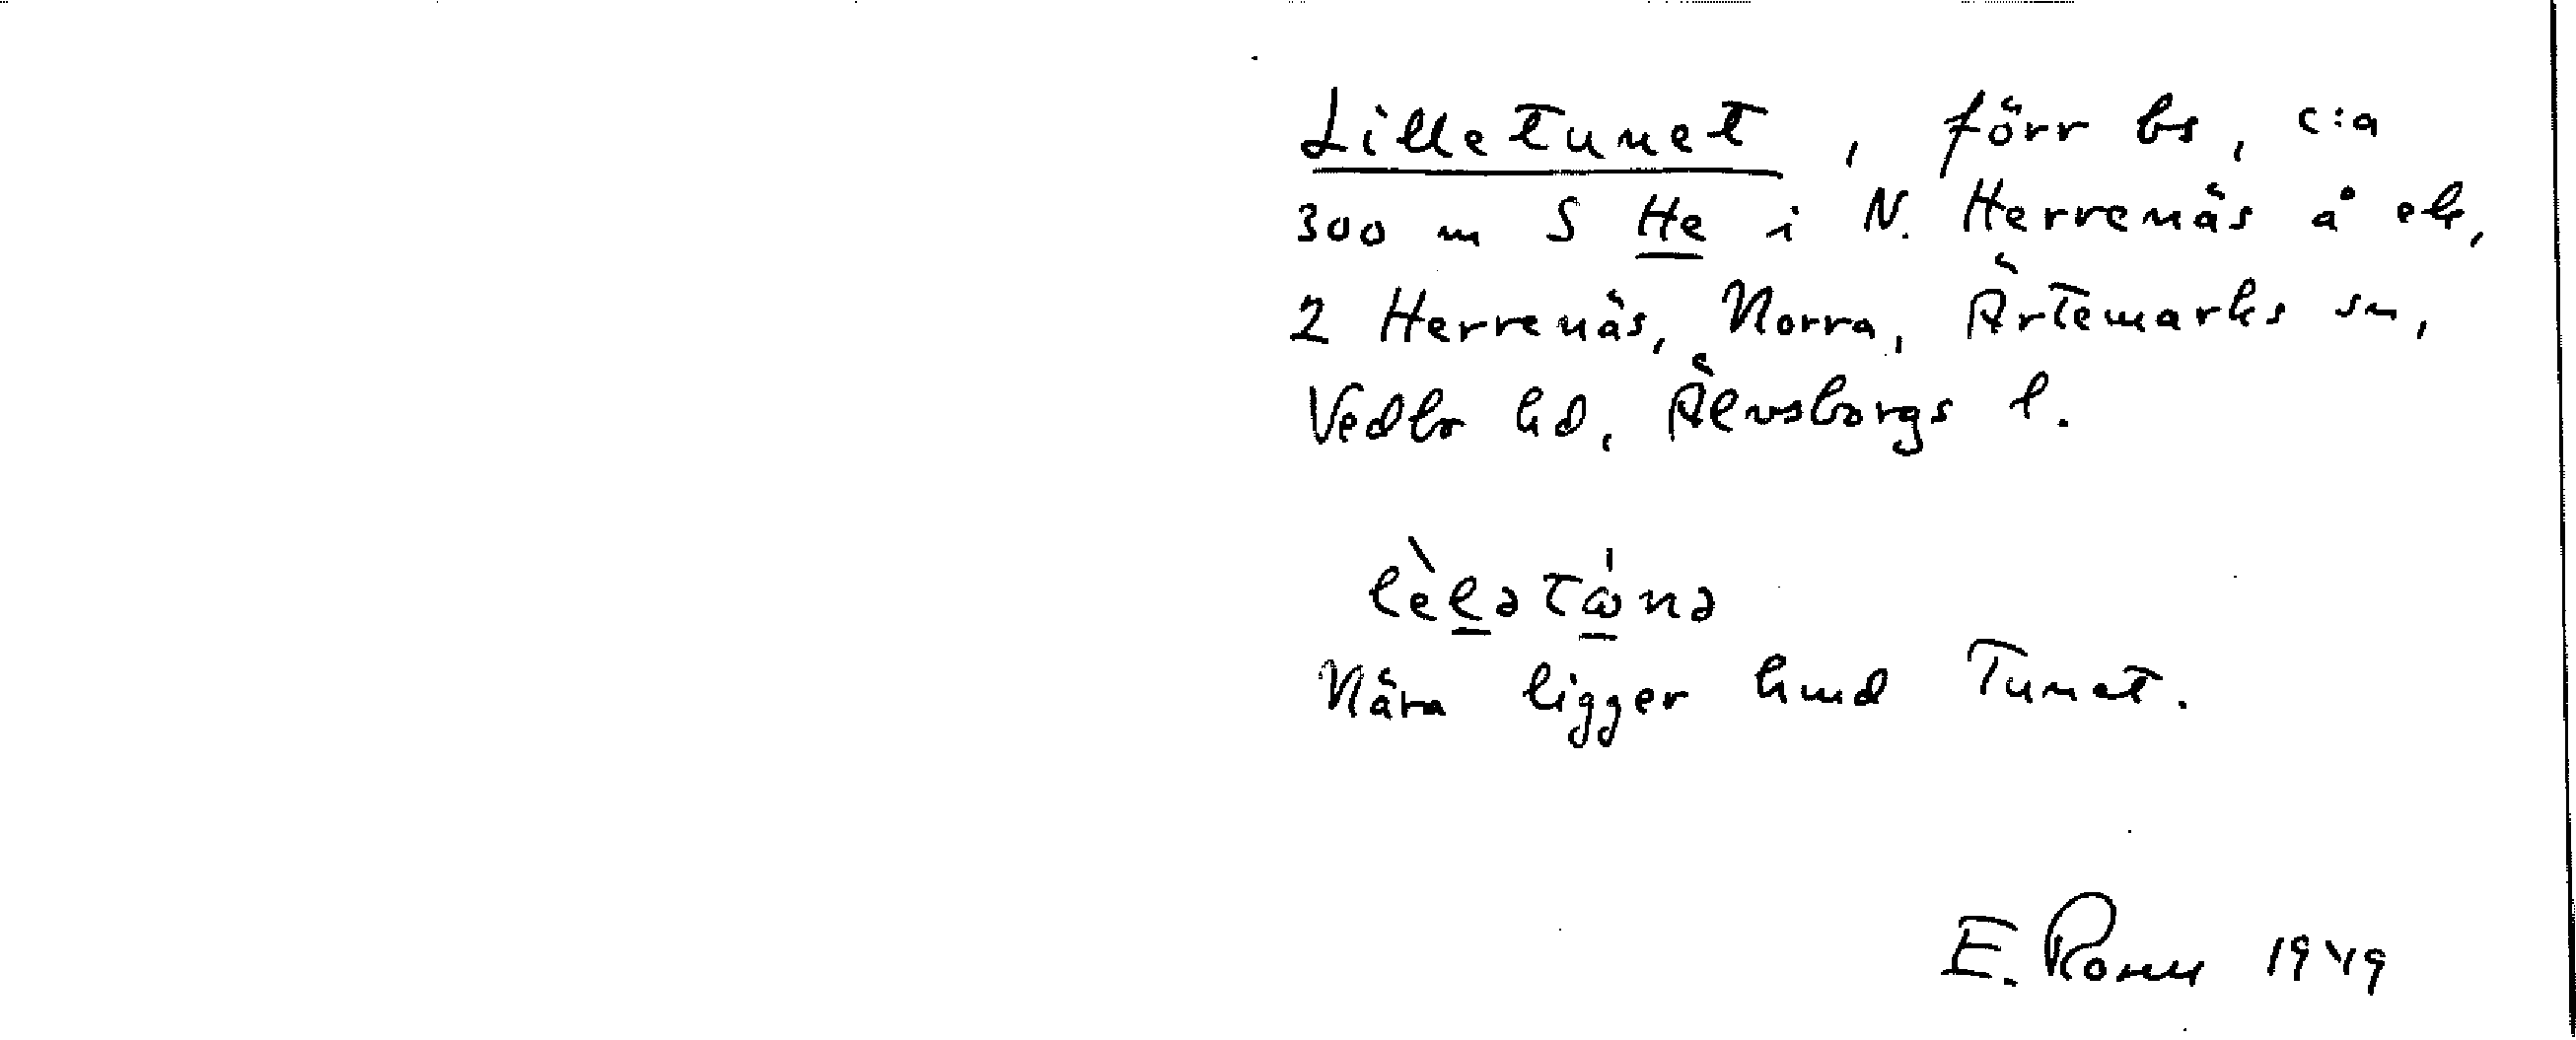 Lilletunet, förr bs, c:a
300 m S He i N. Herrenäs å ek,
2 Herrenäs, Norra, Ärtemarks sn,
Vedbo hd, Älvsborgs l.
lèlətὼnə
Nära ligger hmd Tunet.
E. Rosell 1949